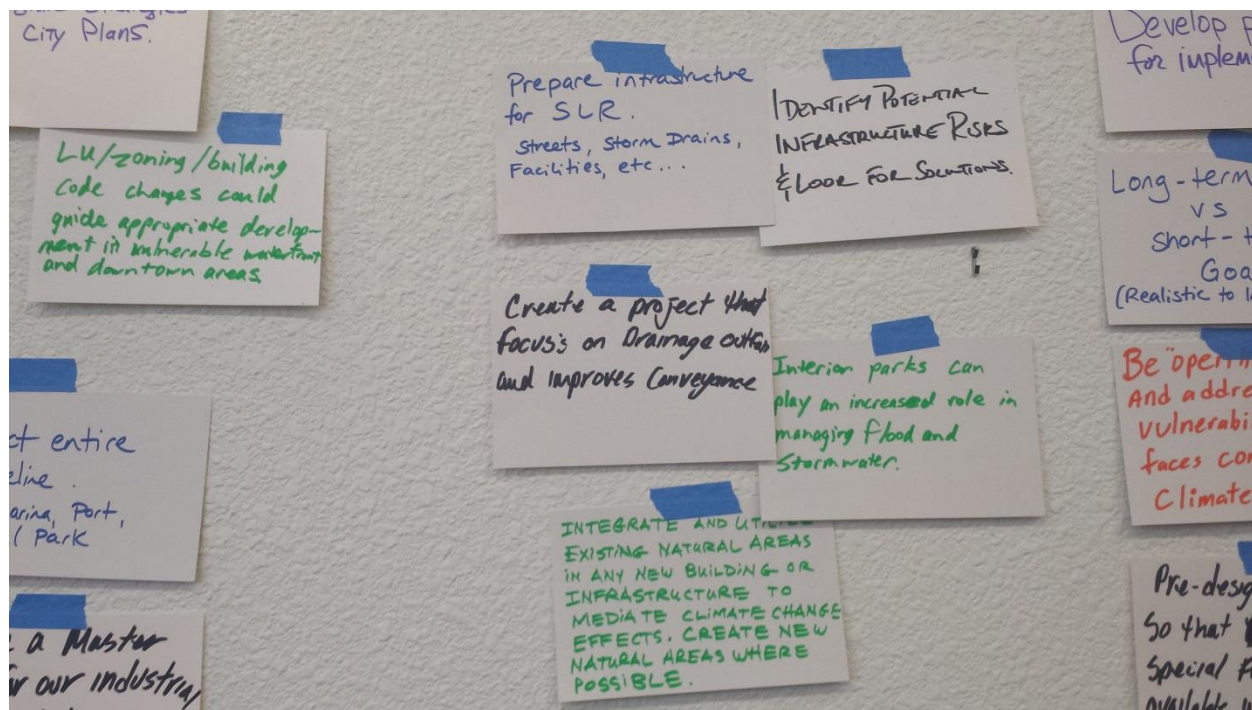 City Plans.
LU/zoning/building
Code changes could
guide appropriate develop-
ment in vulnerable waterfront
and downtown areas.
ct entire
eline.
arina, Port,
Park
a Master
for our industrial
Prepare infrastructure
for SLR.
Streets, Storm Drains,
Facilities, etc...
IDENTIFY POTENTIAL
INFRASTRUCTURE RISKS
& LOOK FOR SOLUTIONS.
Create a project that
focus's on Drainage outfalls
and improves Conveyance
Interior parks can
play an increased role in
managing flood and
Stormwater.
INTEGRATE AND UTILIZE
EXISTING NATURAL AREAS
IN ANY NEW BUILDING OR
INFRASTRUCTURE TO
MEDIATE CLIMATE CHANGE
EFFECTS. CREATE NEW
NATURAL AREAS WHERE
POSSIBLE.
Develop p
for implem
Long-term
vs
Short-t
Goa
(Realistic to
Be "open
And addre
vulnerabi
faces con
Climate
Pre-desig
So that
Special F
available